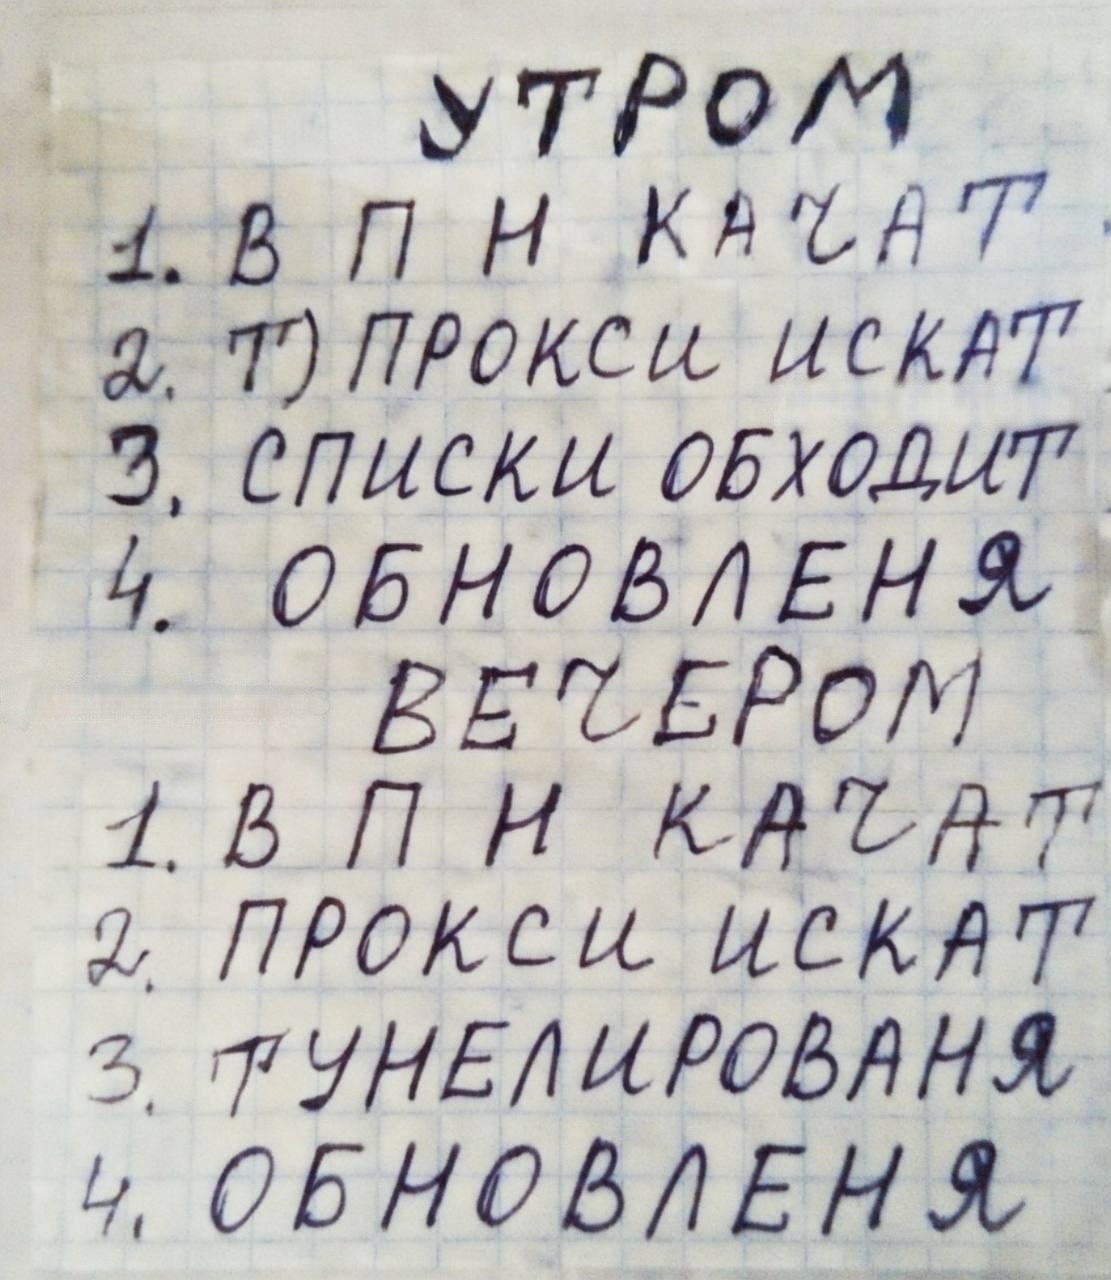 УТРОМ
1. В П Н КАЧАТ
2. Т) ПРОКСИ ИСКАТ
3. СПИСКИ ОБХОДИТ
4. ОБНОВЛЕНЯ
ВЕЧЕРОМ
1. В П Н КАЧАТ
2. ПРОКСИ ИСКАТ
3. ТУНЕЛИРОВАНЯ
4. ОБНОВЛЕНЯ